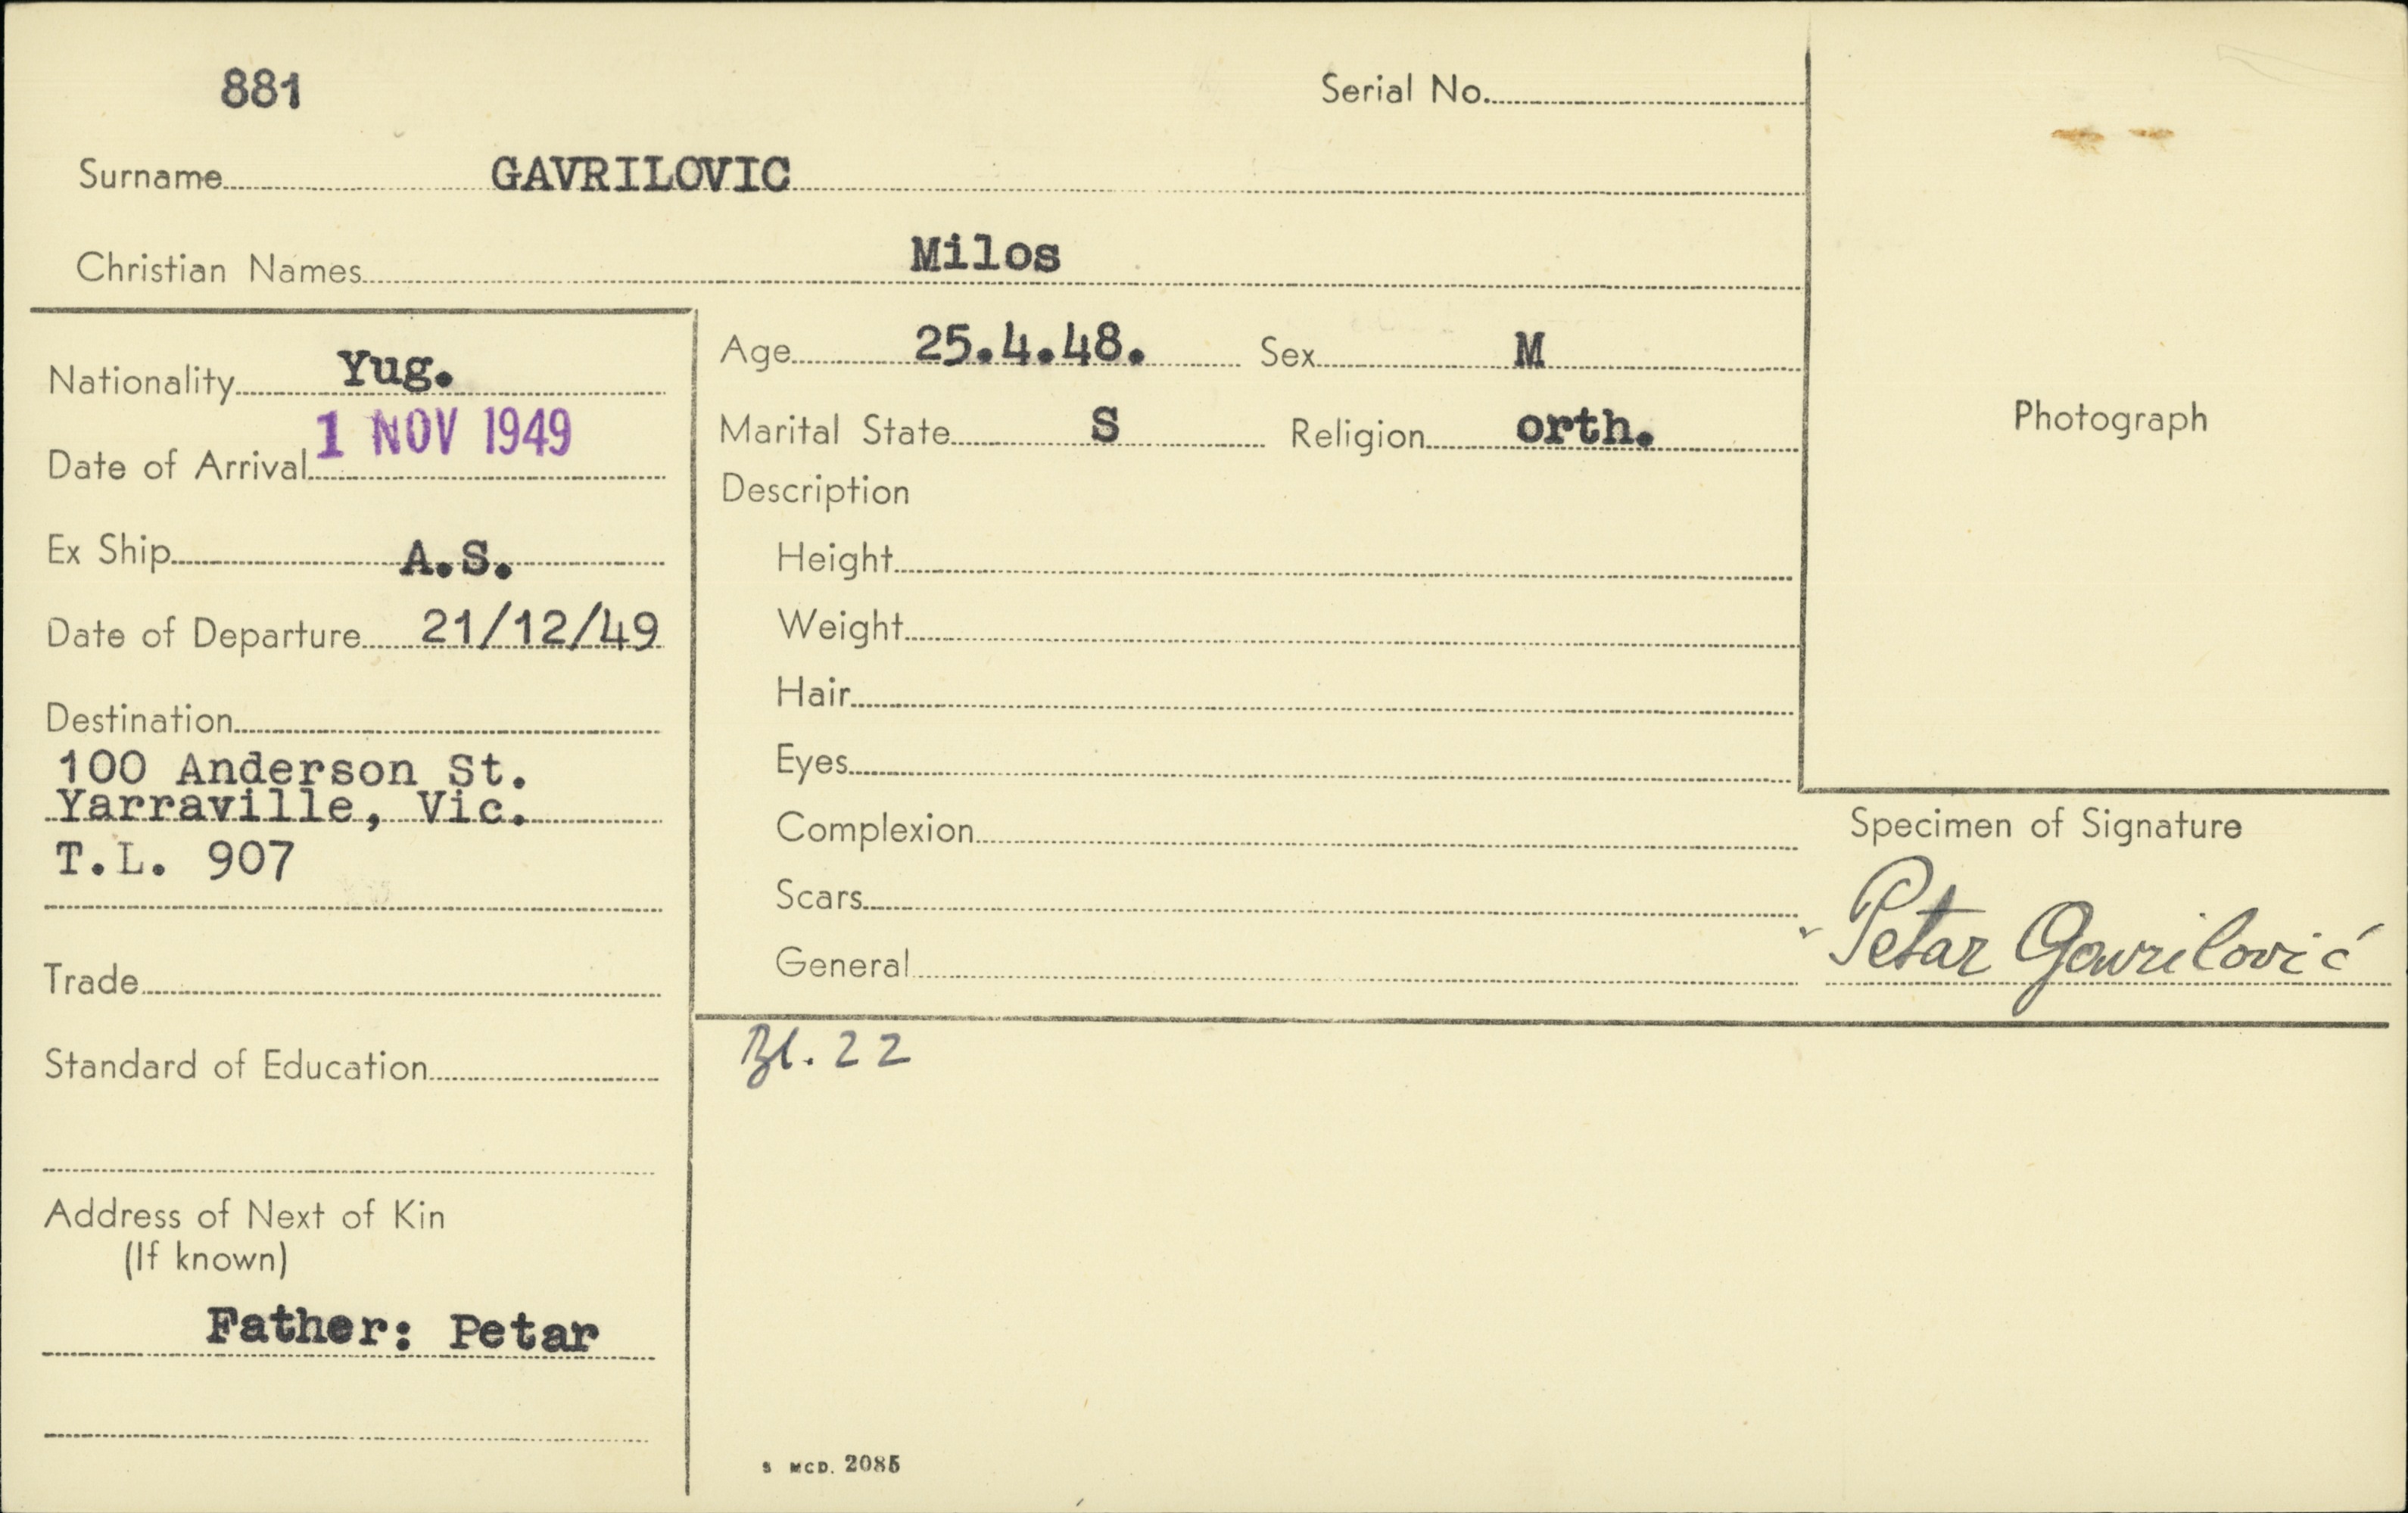 881
Serial No.
Surname GAVRILOVIC
Christian Names Milos
Nationality Yug.
Date of Arrival 1 NOV 1949
Ex Ship A.S.
Date of Departure 21/12/49
Destination
100 Anderson St.
Yarraville, Vic.
T.L. 907
Trade
Standard of Education
Address of Next of Kin
(If known)
Father: Petar
Age 25.4.48. Sex M
Marital State S Religion orth.
Description
Height
Weight
Hair
Eyes
Complexion
Scars
General
Photograph
Specimen of Signature
Petar Gavrilović
Bl. 22
S MCD. 2085